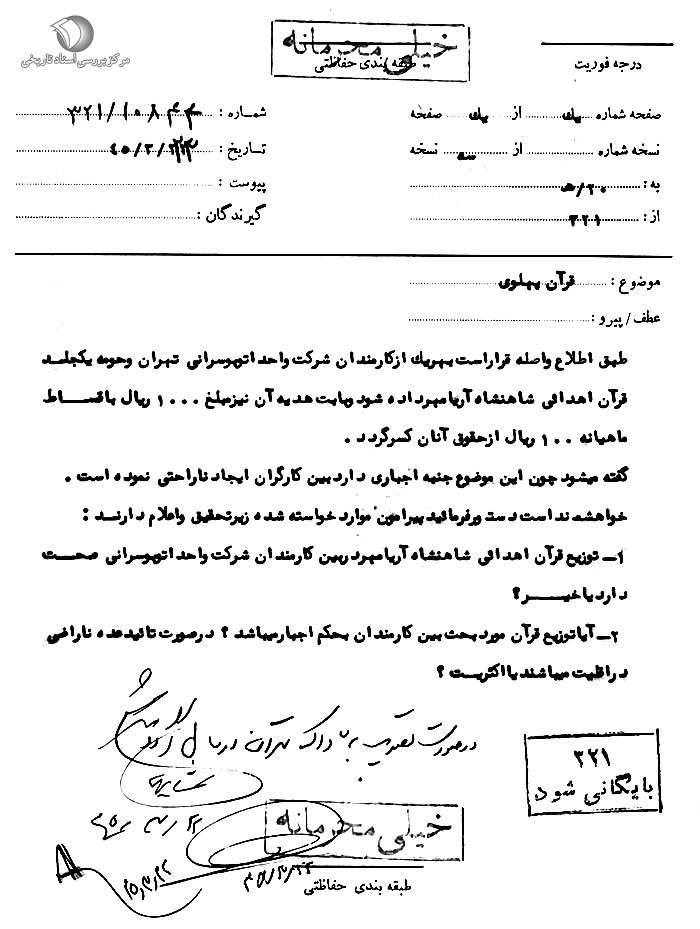 مرکز بررسی اسناد تاریخی
خیلی محرمانه
طبقه بندی حفاظتی
درجه فوریت
صفحه شماره یک از یک صفحه
شماره : ۳۲۱/۱۰۸۴۴
نسخه شماره از سه نسخه
تاریخ :
به : ۲۰/ه
پیوست :
از : ۳۲۱
گیرندگان :
موضوع : قرآن پهلوی
عطف/پیرو :
طبق اطلاع واصله قراراست بهریک ازکارمندان شرکت واحد اتوبوسرانی تهران وحومه یکجلد
قرآن اهدائی شاهنشاه آریامهرداده شود وبابت هدیه آن نیزمبلغ ۱۰۰۰ ریال باقساط
ماهیانه ۱۰۰ ریال ازحقوق آنان کسرگردد .
گفته میشود چون این موضوع جنبه اجباری داردبین کارگران ایجاد ناراحتی نموده است .
خواهشمند است دستورفرمائید پیرامون موارد خواسته شده زیرتحقیق واعلام دارند :
۱- توزیع قرآن اهدائی شاهنشاه آریامهردربین کارمندان شرکت واحد اتوبوسرانی صحت
داردیاخیر ؟
۲- آیا توزیع قرآن مورد بحث بین کارمندان بحکم اجبارمیباشد ؟ درصورت تائیدعده ناراضی
دراقلیت میباشند یااکثریت ؟
درصورت تصویب به
۳۲۱
بایگانی شود
خیلی محرمانه
طبقه بندی حفاظتی